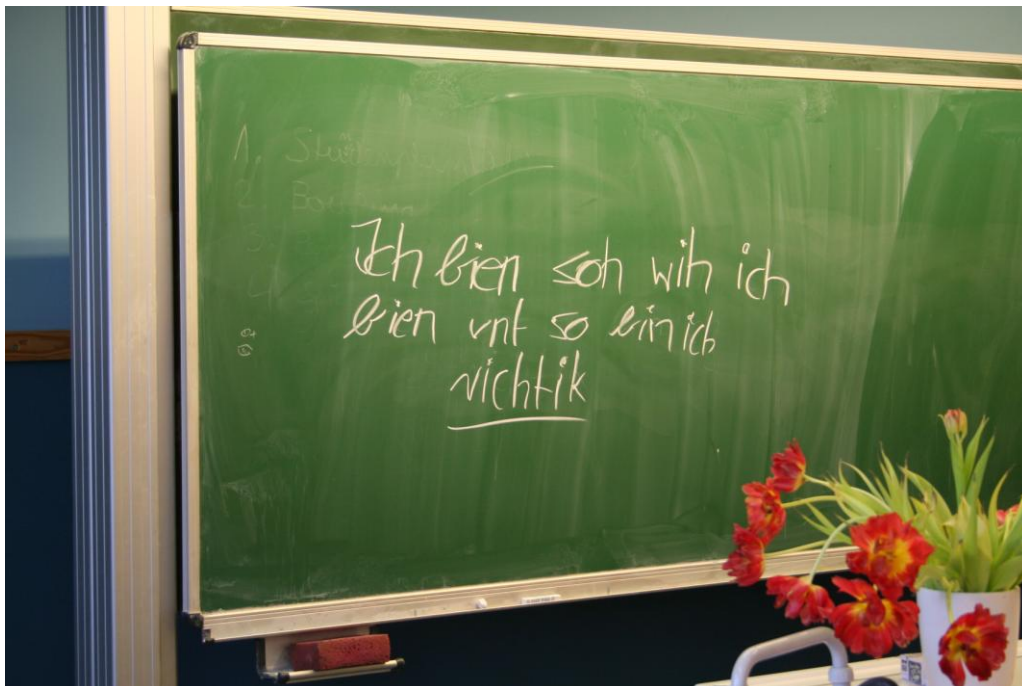 Ich bien soh wih ich
bien unt so bin ich
richtik